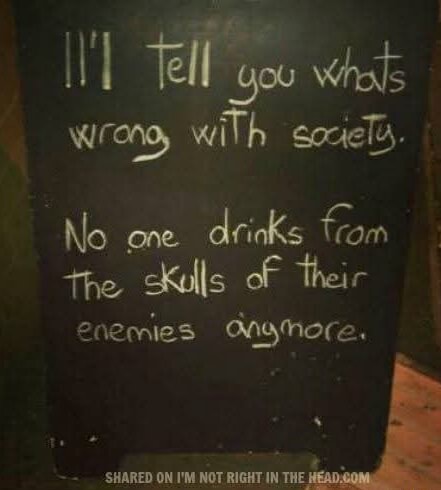 I'll tell you whats
wrong with society.
No one drinks from
the skulls of their
enemies anymore.
SHARED ON I'M NOT RIGHT IN THE HEAD.COM